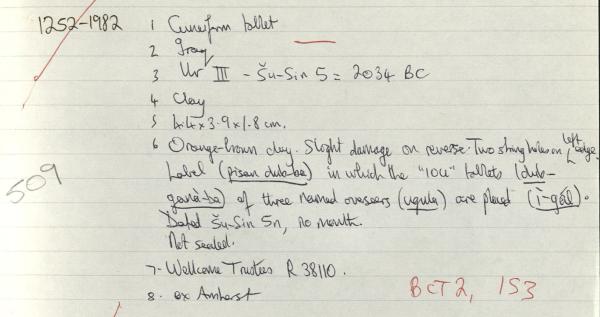 1252-1982
1 Cuneiform tablet
2 Iraq
3 Ur III - Šu-Sin 5 = 2034 BC
4 Clay
5 4.4 x 3.9 x 1.8 cm.
6 Orange-brown clay. Slight damage on reverse. Two string holes on left edge.
Label (pisan dub-ba) in which the "IOU" tablets (dub-
ganà-ba) of three named overseers (ugula) are placed (ì-gál).
Dated Šu-Sin 5n, no month.
Not sealed.
7. Wellcome Trustees R 38110.
8. ex Amherst
509
BCT 2, 153